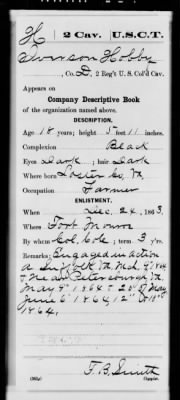 H | 2 Cav. | U.S.C.T.
Hobby
, Co. D, 2 Reg't U. S. Col'd Cav.
Appears on
Company Descriptive Book
of the organization named above.
DESCRIPTION.
Age 18 years; height 5 feet 11 inches.
Complexion Black
Eyes Dark; hair Dark
Where born Co, Va.
Occupation Farmer
ENLISTMENT.
When Dec. 24, 1863.
Where Fort Monroe
By whom Col. Cole; term 3 y'rs.
Remarks: Engaged in action
a Suffolk Va. Mch. 9" 1864
near Petersburgh Va.
May 9" 1864 20" May
June 6" 1864, 12"
1864.
F. B. Smith
Copyist.